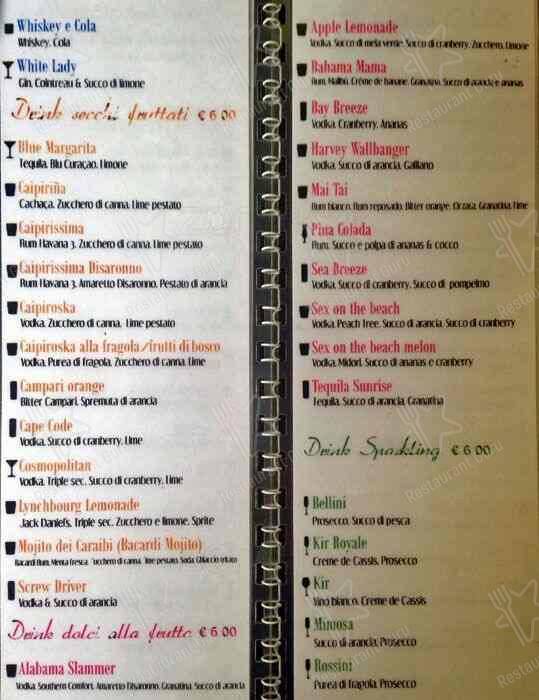 Whiskey e Cola
Whiskey, Cola
White Lady
Gin, Cointreau & Succo di limone
Drink secchi fruttati € 6.00
Blue Margarita
Tequila, Blu Curaçao, Limone
Caipiriña
Cachaça, Zucchero di canna, Lime pestato
Caipirissima
Rum Havana 3, Zucchero di canna, Lime pestato
Caipirissima Disaronno
Rum Havana 3, Amaretto Disaronno, Pestato di arancia
Caipiroska
Vodka, Zucchero di canna, Lime pestato
Caipiroska alla fragola/frutti di bosco
Vodka, Purea di fragola, Zucchero di canna, Lime
Campari orange
Bitter Campari, Spremuta di arancia
Cape Code
Vodka, Succo di cranberry, Lime
Cosmopolitan
Vodka, Triple sec, Succo di cranberry, Lime
Lynchbourg Lemonade
Jack Daniel's, Triple sec, Zucchero e limone, Sprite
Mojito dei Caraibi (Bacardi Mojito)
Bacardi Rum, Menta fresca, Zucchero di canna, lime pestato, Soda, Ghiaccio tritato
Screw Driver
Vodka & Succo di arancia
Drink dolci alla frutta € 6.00
Alabama Slammer
Vodka, Southern Comfort, Amaretto Disaronno, Granatina, Succo di arancia
Apple Lemonade
Vodka, Succo di mela verde, Succo di cranberry, Zucchero, Limone
Bahama Mama
Rum, Malibù, Crème de banane, Granatina, Succo di arancia e ananas
Bay Breeze
Vodka, Cranberry, Ananas
Harvey Wallbanger
Vodka, Succo di arancia, Galliano
Mai Tai
Rum bianco, Rum reposado, Bitter orange, Orzata, Granatina, Lime
Pina Colada
Rum, Succo e polpa di ananas & cocco
Sea Breeze
Vodka, Succo di cranberry, Succo di pompelmo
Sex on the beach
Vodka, Peach Tree, Succo di arancia, Succo di cranberry
Sex on the beach melon
Vodka, Midori, Succo di ananas e cranberry
Tequila Sunrise
Tequila, Succo di arancia, Granatina
Drink Sparkling € 6.00
Bellini
Prosecco, Succo di pesca
Kir Royale
Creme de Cassis, Prosecco
Kir
Vino bianco, Creme de Cassis
Mimosa
Succo di arancia, Prosecco
Rossini
Purea di fragola, Prosecco